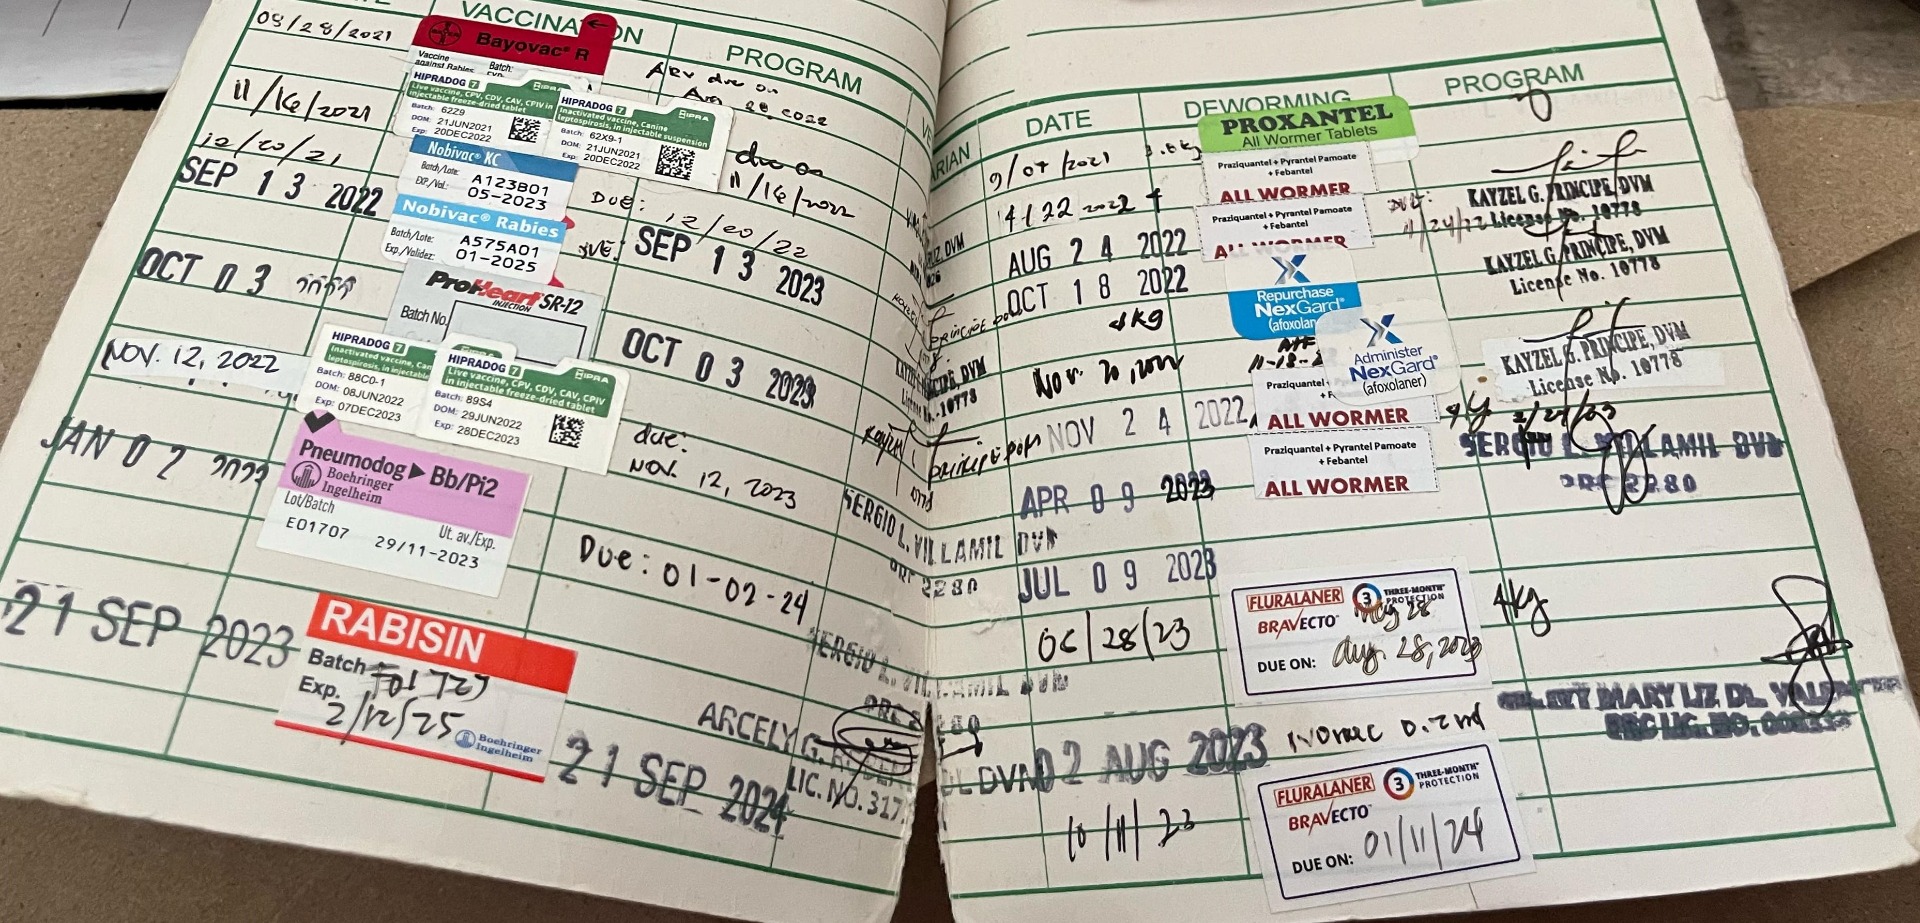 VACCINATION
PROGRAM
08/28/2021
Bayovac® R
Vaccine
against Rabies
Batch:
ARV due on
11/16/2021
HIPRADOG 7
HIPRA
Live vaccine, CPV, CDV, CAV, CPIV in
injectable freeze-dried tablet
Batch: 62Z9
DOM: 21JUN2021
Exp: 20DEC2022
HIPRADOG 7
HIPRA
Inactivated vaccine, Canine
leptospirosis, in injectable suspension
Batch: 62X9-1
DOM: 21JUN2021
Exp: 20DEC2022
due on
11/16/2022
12/20/21
Nobivac® KC
Batch/Lote: A123B01
EXP./Val.: 05-2023
Due: 12/20/22
SEP 13 2022
Nobivac® Rabies
Batch/Lote: A575A01
Exp./Validez: 01-2025
DUE: SEP 13 2023
OCT 03
ProHeart SR-12
INJECTION
Batch No.
OCT 03 2023
NOV. 12, 2022
HIPRADOG 7
Inactivated vaccine, Can
leptospirosis, in injectable
Batch: 88C0-1
DOM: 08JUN2022
Exp: 07DEC2023
HIPRADOG 7
HIPRA
Live vaccine, CPV, CDV, CAV, CPIV
in injectable freeze-dried tablet
Batch: 89S4
DOM: 29JUN2022
Exp: 28DEC2023
due:
NOV. 12, 2023
JAN 02 2023
Pneumodog ▶ Bb/Pi2
Boehringer
Ingelheim
Lot/Batch
Ut. av./Exp.
E01707
29/11-2023
Due: 01-02-24
SERGIO L. VILLAMIL DVM
PRC 2280
21 SEP 2023
RABISIN
Batch
Exp.
2/12/25
Boehringer
Ingelheim
21 SEP 2024
SERGIO L. VILLAMIL DVM
ARCELY G.
LIC. NO. 317
DATE
DEWORMING
PROGRAM
9/07/2021
3.8kg
PROXANTEL
All Wormer Tablets
4/22 2022
Praziquantel + Pyrantel Pamoate
+ Febantel
ALL WORMER
KAYZEL G. PRINCIPE, DVM
License No. 10778
AUG 24 2022
Praziquantel + Pyrantel Pamoate
+ Febantel
ALL WORMER
Due:
11/24/22
KAYZEL G. PRINCIPE, DVM
License No. 10778
OCT 18 2022
4kg
Repurchase
NexGard®
(afoxolaner
Nov. 20, 2022
Administer
NexGard®
(afoxolaner)
KAYZEL G. PRINCIPE, DVM
License No. 10778
NOV 24 2022
Praziquantel +
+ Febantel
ALL WORMER
4kg
2/24/23
APR 09 2023
Praziquantel + Pyrantel Pamoate
+ Febantel
ALL WORMER
SERGIO L. VILLAMIL DVM
PRC 2280
JUL 09 2023
06/28/23
FLURALANER
3 THREE-MONTH
PROTECTION
BRAVECTO
May 28
DUE ON: Aug. 28, 2023
4kg
02 AUG 2023
Ivomec 0.2ml
10/11/23
FLURALANER
3 THREE-MONTH
PROTECTION
BRAVECTO
DUE ON: 01/11/24